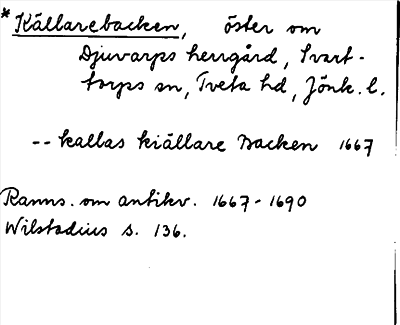 *Källarebacken, öster om
Djuvarps herrgård, Svart-
torps sn, Tveta hd, Jönk. l.
-- kallas kiällare Backen 1667
Ranns. om antikv. 1667-1690
Wilstadius s. 136.